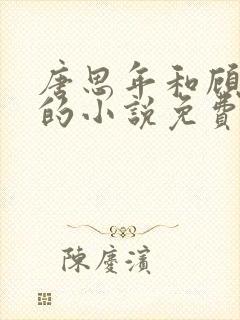 唐思年和顾
的小說免費
陳慶濱